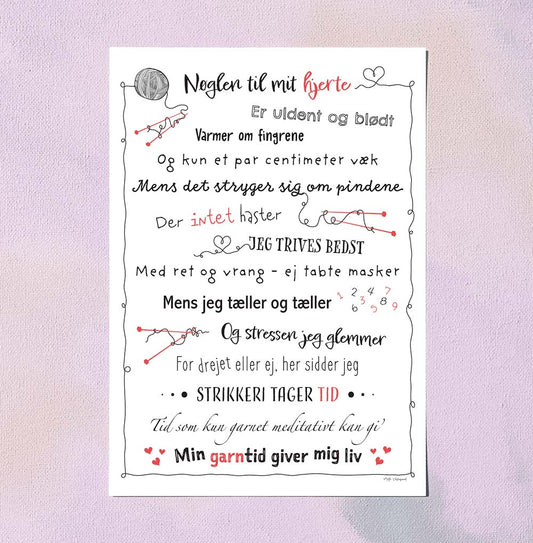 Nøglen til mit hjerte
Er uldent og blødt
Varmer om fingrene
Og kun et par centimeter væk
Mens det stryger sig om pindene
Der intet haster
JEG TRIVES BEDST
Med ret og vrang - ej tabte masker
Mens jeg tæller og tæller 1 2 3 4 5 6 7 8 9
Og stressen jeg glemmer
For drejet eller ej, her sidder jeg
STRIKKERI TAGER TID
Tid som kun garnet meditativt kan gi'
Min garntid giver mig liv